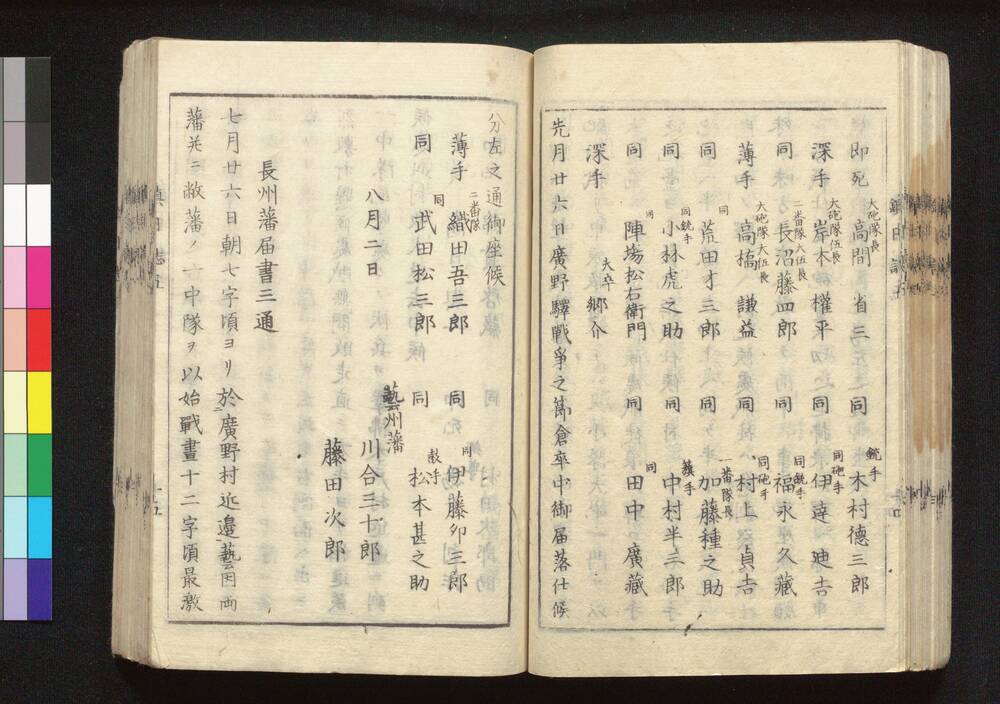 即死 大砲隊長 高間省三 同 銃手 木村德三郎
深手 大砲隊伍長 岸本權平 同 同砲手 伊達廸吉
同 二番隊大伍長 長沼藤四郎 同 同銃手 福永久藏
薄手 大砲隊大伍長 高橋謙益 同 同砲手 村上貞吉
同 同 荒田才三郎 同 一番隊長 加藤種之助
同 同銃手 小林虎之助 同 簱手 中村半三郎
同 同 陣場松右衛門 同 同 田中廣藏
深手 夫卒 郷介
先月廿六日廣野驛戰爭之節倉卒中御届落仕候
分左之通御座候
薄手 二番隊 織田吾三郎 同 同 伊藤卯三郎
同 同 武田松三郎 同 鼓手 松本甚之助
八月二日 藝州藩
川合三十郎
藤田次郎
長州藩届書三通
七月廿六日朝七字頃ヨリ於廣野村近邊藝因両
藩并ニ敝藩ノ一中隊ヲ以始戰晝十二字頃最激